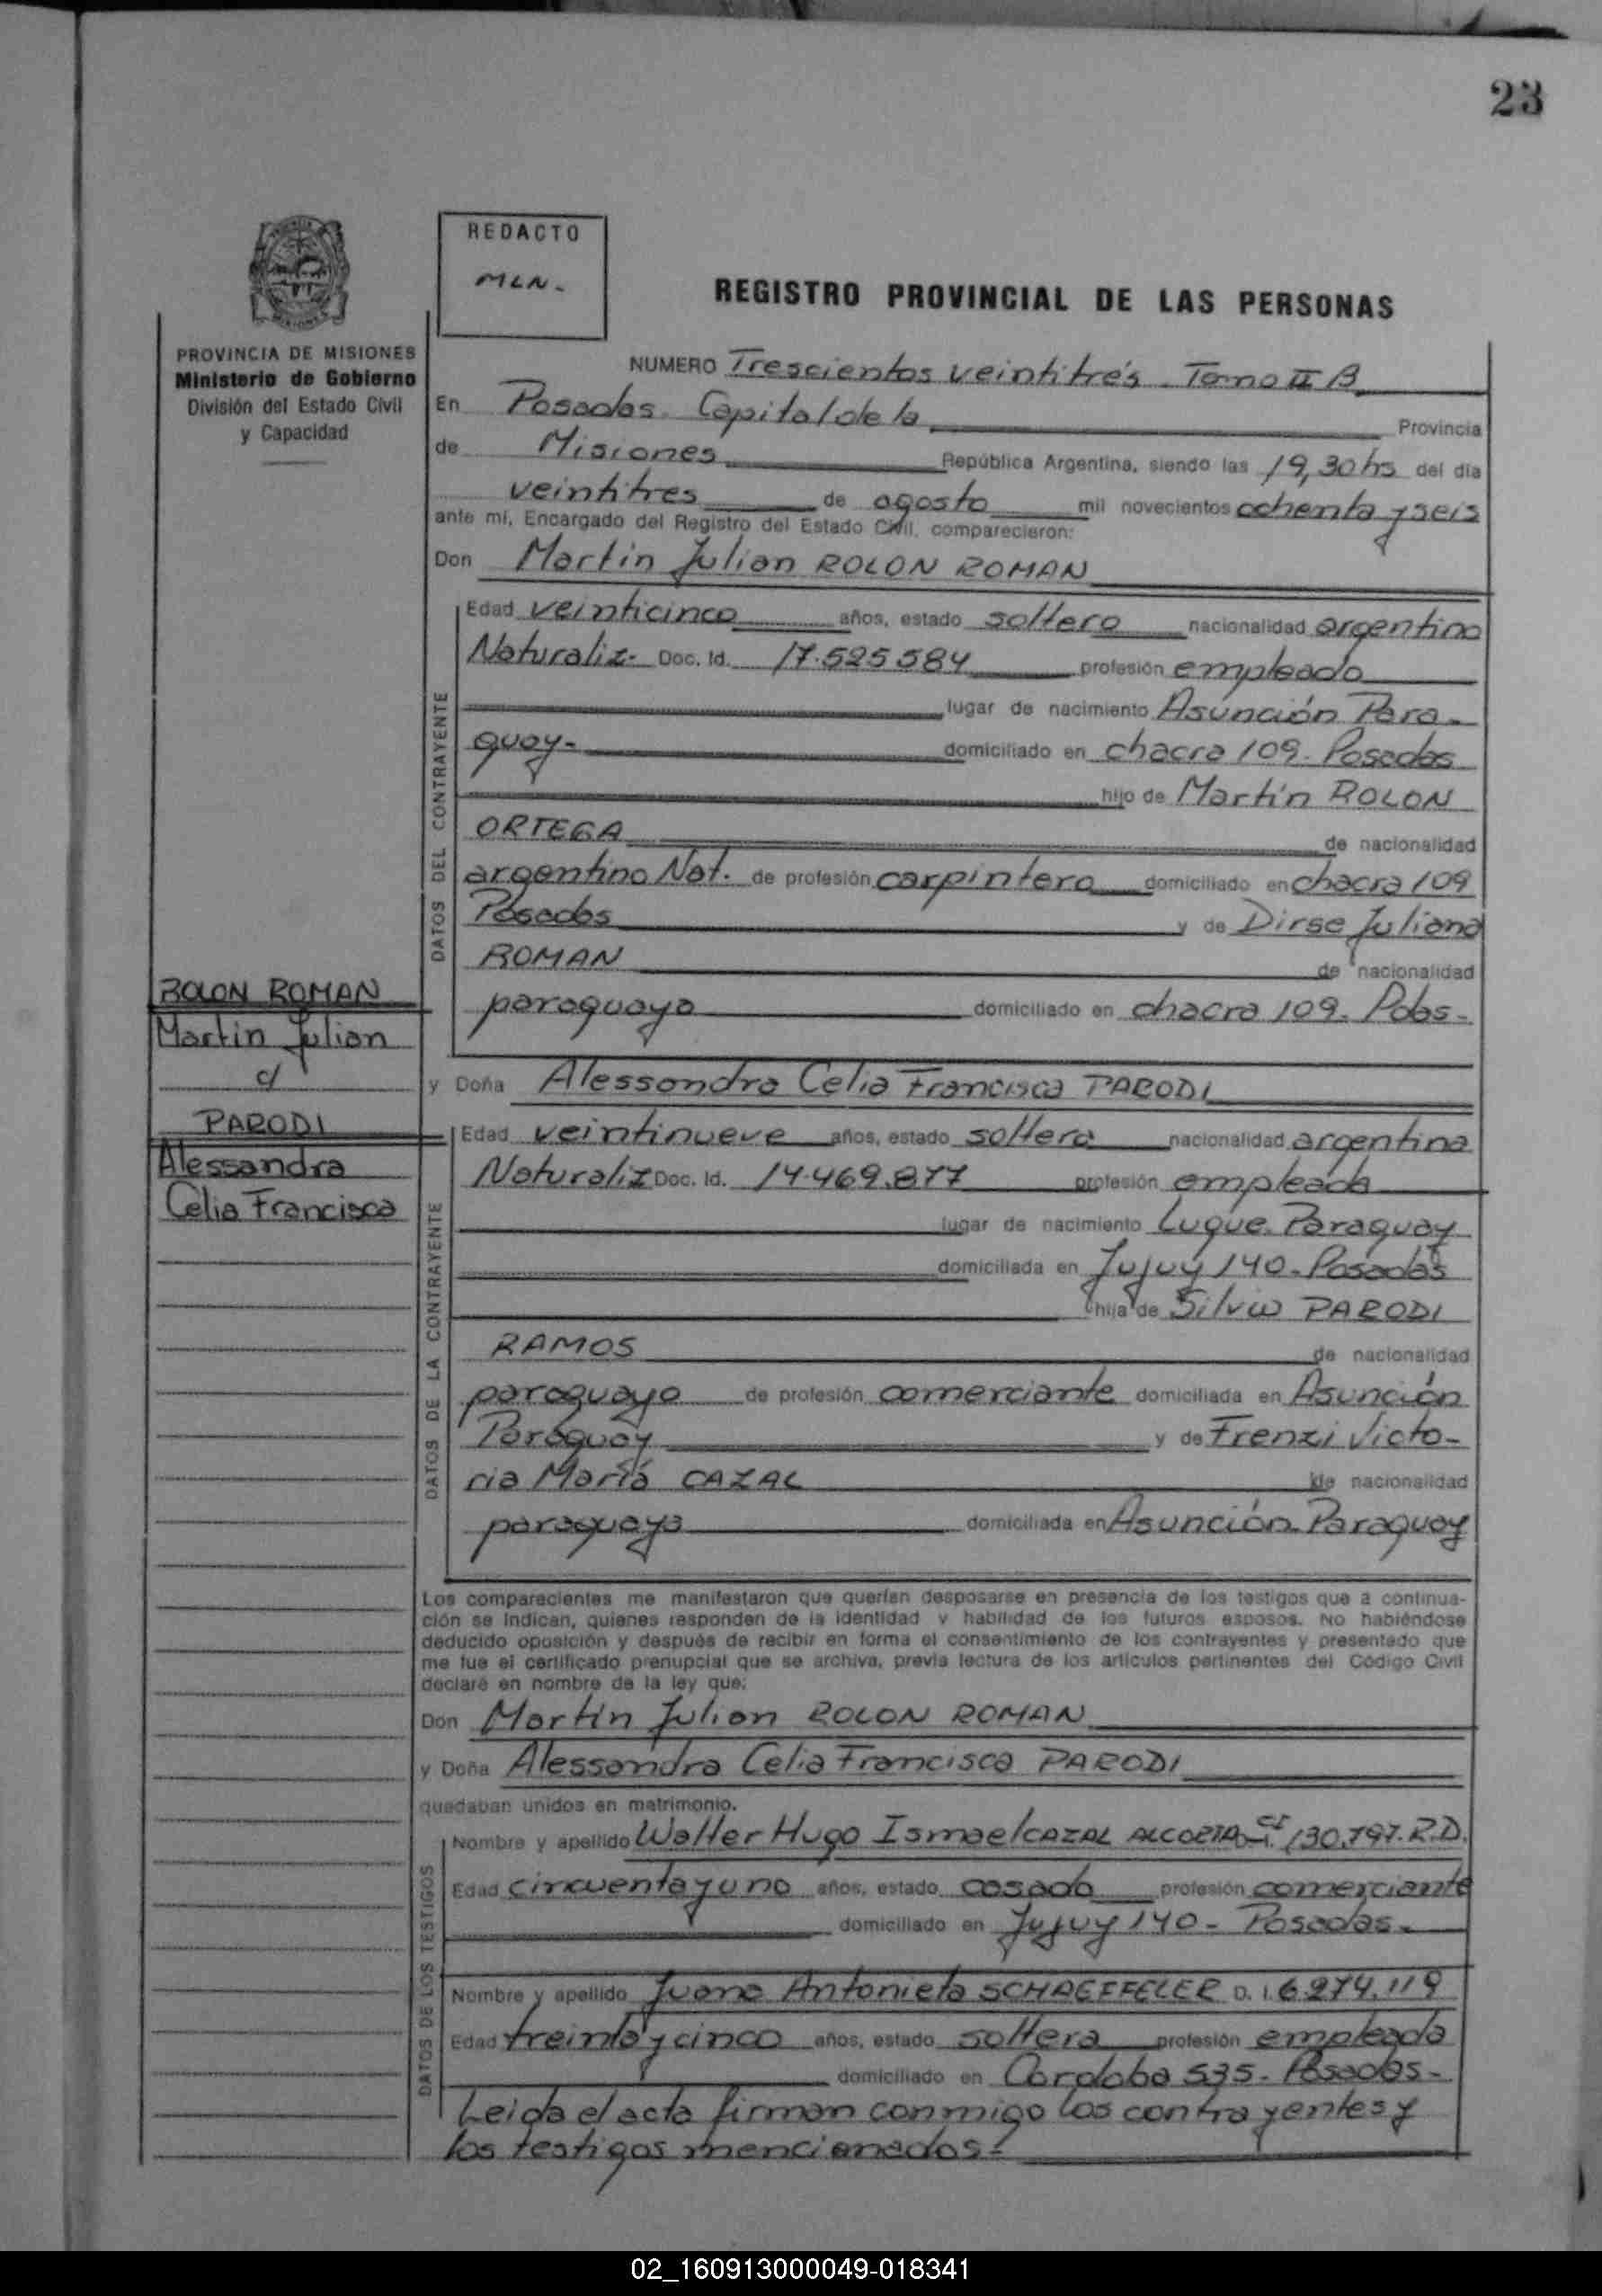 23
REDACTO
MLN-
REGISTRO PROVINCIAL DE LAS PERSONAS
PROVINCIA DE MISIONES
Ministerio de Gobierno
División del Estado Civil
y Capacidad
NUMERO Trescientos veintitrés. Tomo II B
En Posadas. Capital de la Provincia
de Misiones República Argentina, siendo las 19,30 hs del día
veintitres de agosto mil novecientos ochenta y seis
ante mí, Encargado del Registro del Estado Civil, comparecieron:
Don Martin Julian ROLON ROMAN
DATOS DEL CONTRAYENTE
Edad veinticinco años, estado soltero nacionalidad argentino
Naturaliz- Doc. Id. 17.525.584 profesión empleado
lugar de nacimiento Asunción Para-
guay- domiciliado en chacra 109- Posadas
hijo de Martin ROLON
ORTEGA de nacionalidad
argentino Nat. de profesión carpintero domiciliado en chacra 109
Posadas y de Dirse Juliana
ROMAN de nacionalidad
paraguaya domiciliado en chacra 109- Pdas-
ROLON ROMAN
Martin Julian
c/
PARODI
Alessandra
Celia Francisca
y Doña Alessandra Celia Francisca PARODI
DATOS DE LA CONTRAYENTE
Edad veintinueve años, estado soltera nacionalidad argentina
Naturaliz Doc. Id. 14.469.877 profesión empleada
lugar de nacimiento Luque. Paraguay
domiciliada en Jujuy 140- Posadas
hija de Silvio PARODI
RAMOS de nacionalidad
paraguayo de profesión comerciante domiciliada en Asunción
Paraguay y de Frenzi Victo-
ria María CAZAL de nacionalidad
paraguaya domiciliada en Asunción. Paraguay
Los comparecientes me manifestaron que querían desposarse en presencia de los testigos que a continua-
ción se indican, quienes responden de la identidad y habilidad de los futuros esposos. No habiéndose
deducido oposición y después de recibir en forma el consentimiento de los contrayentes y presentado que
me fue el certificado prenupcial que se archiva, previa lectura de los artículos pertinentes del Código Civil
declaré en nombre de la ley que:
Don Martin Julian ROLON ROMAN
y Doña Alessandra Celia Francisca PARODI
quedaban unidos en matrimonio.
DATOS DE LOS TESTIGOS
Nombre y apellido Walter Hugo Ismael CAZAL ALCORTA CI 130.797. R.D.
Edad cincuenta y uno años, estado casado profesión comerciante
domiciliado en Jujuy 140- Posadas-
Nombre y apellido Juana Antonieta SCHAEFFELER D. I. 6.274.119
Edad treinta y cinco años, estado soltera profesión empleada
domiciliado en Cordoba 535- Posadas-
Leida el acta firman conmigo los contrayentes y
los testigos mencionados-
02_160913000049-018341